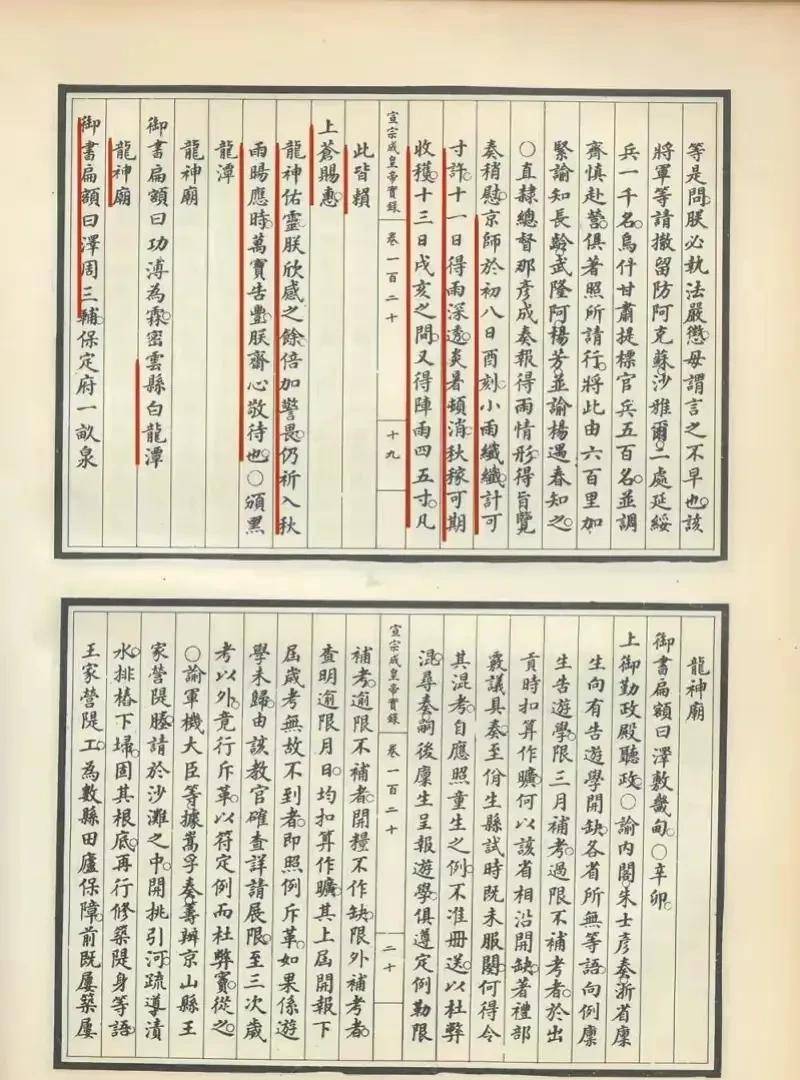 等是問。朕必執法嚴懲。毋謂言之不早也。該
將軍等請撤留防阿克蘇。沙雅爾。二處延綏
兵一千名。烏什甘肅提標官兵五百名。並調
齊慎赴營。俱著照所請行。將此由六百里加
緊諭知長齡武隆阿楊芳並諭楊遇春知之。
○直隸總督那彥成奏報得雨情形。得旨覽
奏稍慰。京師於初八日酉刻。小雨纖纖。計可
寸許。十一日得雨深透。炎暑頓消。秋稼可期
收穫。十三日戌亥之間。又得陣雨四五寸。凡
宣宗成皇帝實錄 卷一百二十 十九
此皆賴
上蒼賜惠。
龍神佑靈。朕欣感之餘。倍加警畏。仍祈入秋
雨暘應時。萬寶告豐。朕齋心敬待也。○頒黑
龍潭
龍神廟
御書扁額曰功溥為霖。密雲縣白龍潭
龍神廟
御書扁額曰澤周三輔。保定府一畝泉
龍神廟
御書扁額曰澤敷畿甸。○辛卯。
上御勤政殿聽政。○諭內閣朱士彥奏浙省廩
生向有告遊學開缺。各省所無等語。向例廩
生告遊學。限三月補考。過限不補考者。於出
貢時扣算作曠。何以該省相沿開缺。著禮部
覈議具奏。至佾生縣試時既未服闋。何得令
其混考。自應照童生之例。不准冊送。以杜弊
混。尋奏嗣後廩生呈報遊學。俱遵定例勒限
宣宗成皇帝實錄 卷一百二十 二十
補考。逾限不補者。開糧不作缺。限外補考者
查明逾限月日。均扣算作曠。其上屆開報下
屆歲考無故不到者。即照例斥革。如果係遊
學未歸。由該教官確查詳請展限。至三次歲
考以外。竟行斥革。以符定例而杜弊竇。從之。
○諭軍機大臣等。據嵩孚奏。籌辦京山縣王
家營隄塍。請於沙灘之中。開挑引河。疏導漬
水。排樁下埽。固其根底。再行修築隄身等語。
王家營隄工。為數縣田廬保障。前既屢築屢